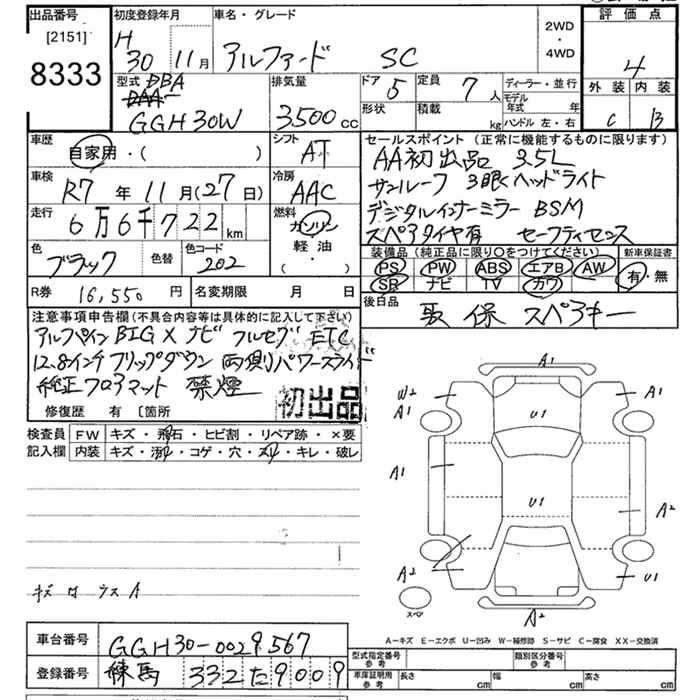 出品番号 初度登録年月 車名・グレード 2WD・4WD 評価点
[2151]
8333
H 30 11月 アルファード SC 4
型式 DBA 排気量 ドア 5 定員 7人 ディーラー・並行 外装 内装
GGH30W 3500cc 形状 積載 kg モデル年式 年 C B
ハンドル 左・右
車歴 自家用・( ) シフト AT セールスポイント(正常に機能するものに限ります)
AA初出品 3.5L
車検 R7年11月(27日) 冷房 AAC サンルーフ 3眼ヘッドライト
走行 6万6千722km 燃料 ガソリン 軽油・( ・ ) デジタルインナーミラー BSM
スペアタイヤ有 セーフティセンス
色 ブラック 色替 色コード 202 装備品(純正品に限り○をつけてください) 新車保証書
PS PW ABS エアB AW 有・無
SR ナビ TV カワ
R券 16,550円 名変期限 月 日 後日品 取 保 スペアキー
注意事項申告欄(不具合内容等は具体的に記入して下さい)
アルパイン BIG X ナビ フルセグ ETC
12.8インチ フリップダウン 両側パワースライド
純正フロアマット 禁煙
初出品
修復歴 有 〔箇所
検査員 FW キズ・飛石・ヒビ割・リペア跡・×要
記入欄 内装 キズ・汚れ・コゲ・穴・スリ・キレ・破レ
A1
W2 A1 U1 A1 A1
A1
U1 A2
A2 U1
スペア A2
A-キズ E-エクボ U-凹み W-補修跡 S-サビ C-腐食 XX-交換済
車台番号 GGH30-0029567
登録番号 練馬 332 た 9009
型式指定番号 参考 類別区分番号 参考
車庫証明用 参考 長さ cm 幅 cm 高さ cm